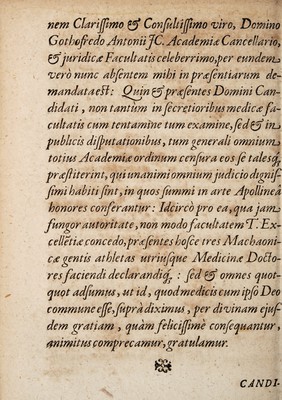 nem Clarissimo & Consultissimo viro, Domino
Gothofredo Antonii JC. Academiæ Cancellario,
& juridicæ Facultatis celeberrimo, per eundem
verò nunc absentem mihi in præsentiarum de-
mandata est: Quin & præsentes Domini Can-
didati, non tantum in secretioribus medicæ fa-
cultatis cum tentamine tum examine, sed & in
publicis disputationibus, tum generali omnium
totius Academiæ ordinum censura eos se talesq́;
præstiterint, qui unanimi omnium judicio dignis-
simi habiti sint, in quos summi in arte Apollinea
honores conferantur: Idcircò pro ea, qua jam
fungor autoritate, non modo facultatem T. Ex-
cellẽtiæ concedo, præsentes hosce tres Machaoni-
cæ gentis athletas utriusque Medicinæ Docto-
res faciendi declarandiq́;: sed & omnes quot-
quot adsumus, ut id, quod medicis cum ipso Deo
commune esse, suprà diximus, per divinam ejus-
dem gratiam, quàm felicissimè consequantur,
animitus comprecamur, gratulamur.
CANDI-